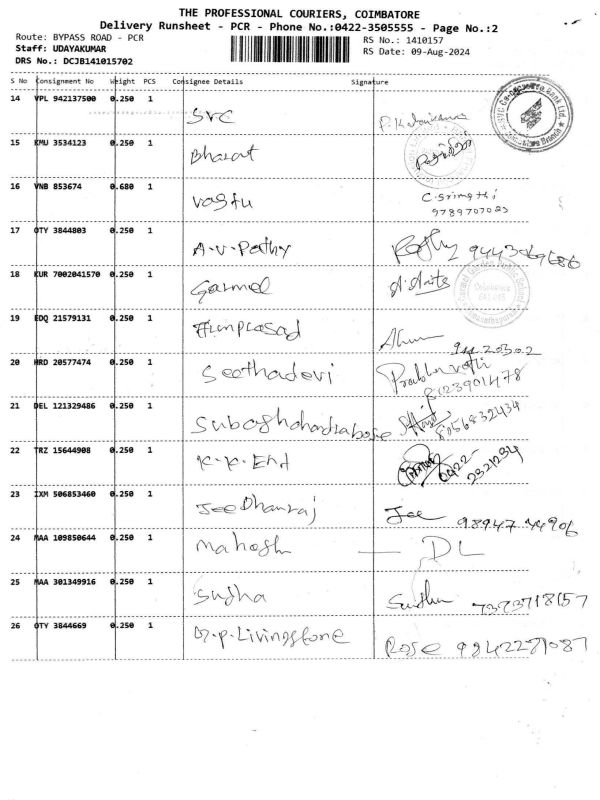 THE PROFESSIONAL COURIERS, COIMBATORE
Delivery Runsheet - PCR - Phone No.:0422-3505555 - Page No.:2
Route: BYPASS ROAD - PCR
RS No.: 1410157
Staff: UDAYAKUMAR
RS Date: 09-Aug-2024
DRS No.: DCJB141015702
S No Consignment No Weight PCS Consignee Details Signature
14 VPL 942137500 0.250 1 SVC
15 KMU 3534123 0.250 1 Bharat
16 VNB 853674 0.680 1 Vastu C. Srimathi
9789707023
17 OTY 3844803 0.250 1 A.V. Pathy
18 KUR 7002041570 0.250 1 Garmel
19 EDQ 21579131 0.250 1 Arunprasad
20 HRD 20577474 0.250 1 Seethadevi
8123901478
21 DEL 121329486 0.250 1 Subashchandrabose 8056832434
22 TRZ 15644908 0.250 1 K.K. End 0422-
2321234
23 IXM 506853460 0.250 1 Jee Dhanraj Jee 98947 44906
24 MAA 109850644 0.250 1 Mahesh — DL
25 MAA 301349916 0.250 1 Sudha Sudha 7373718157
26 OTY 3844669 0.250 1 Dr. P. Livingstone Rose 9942281087